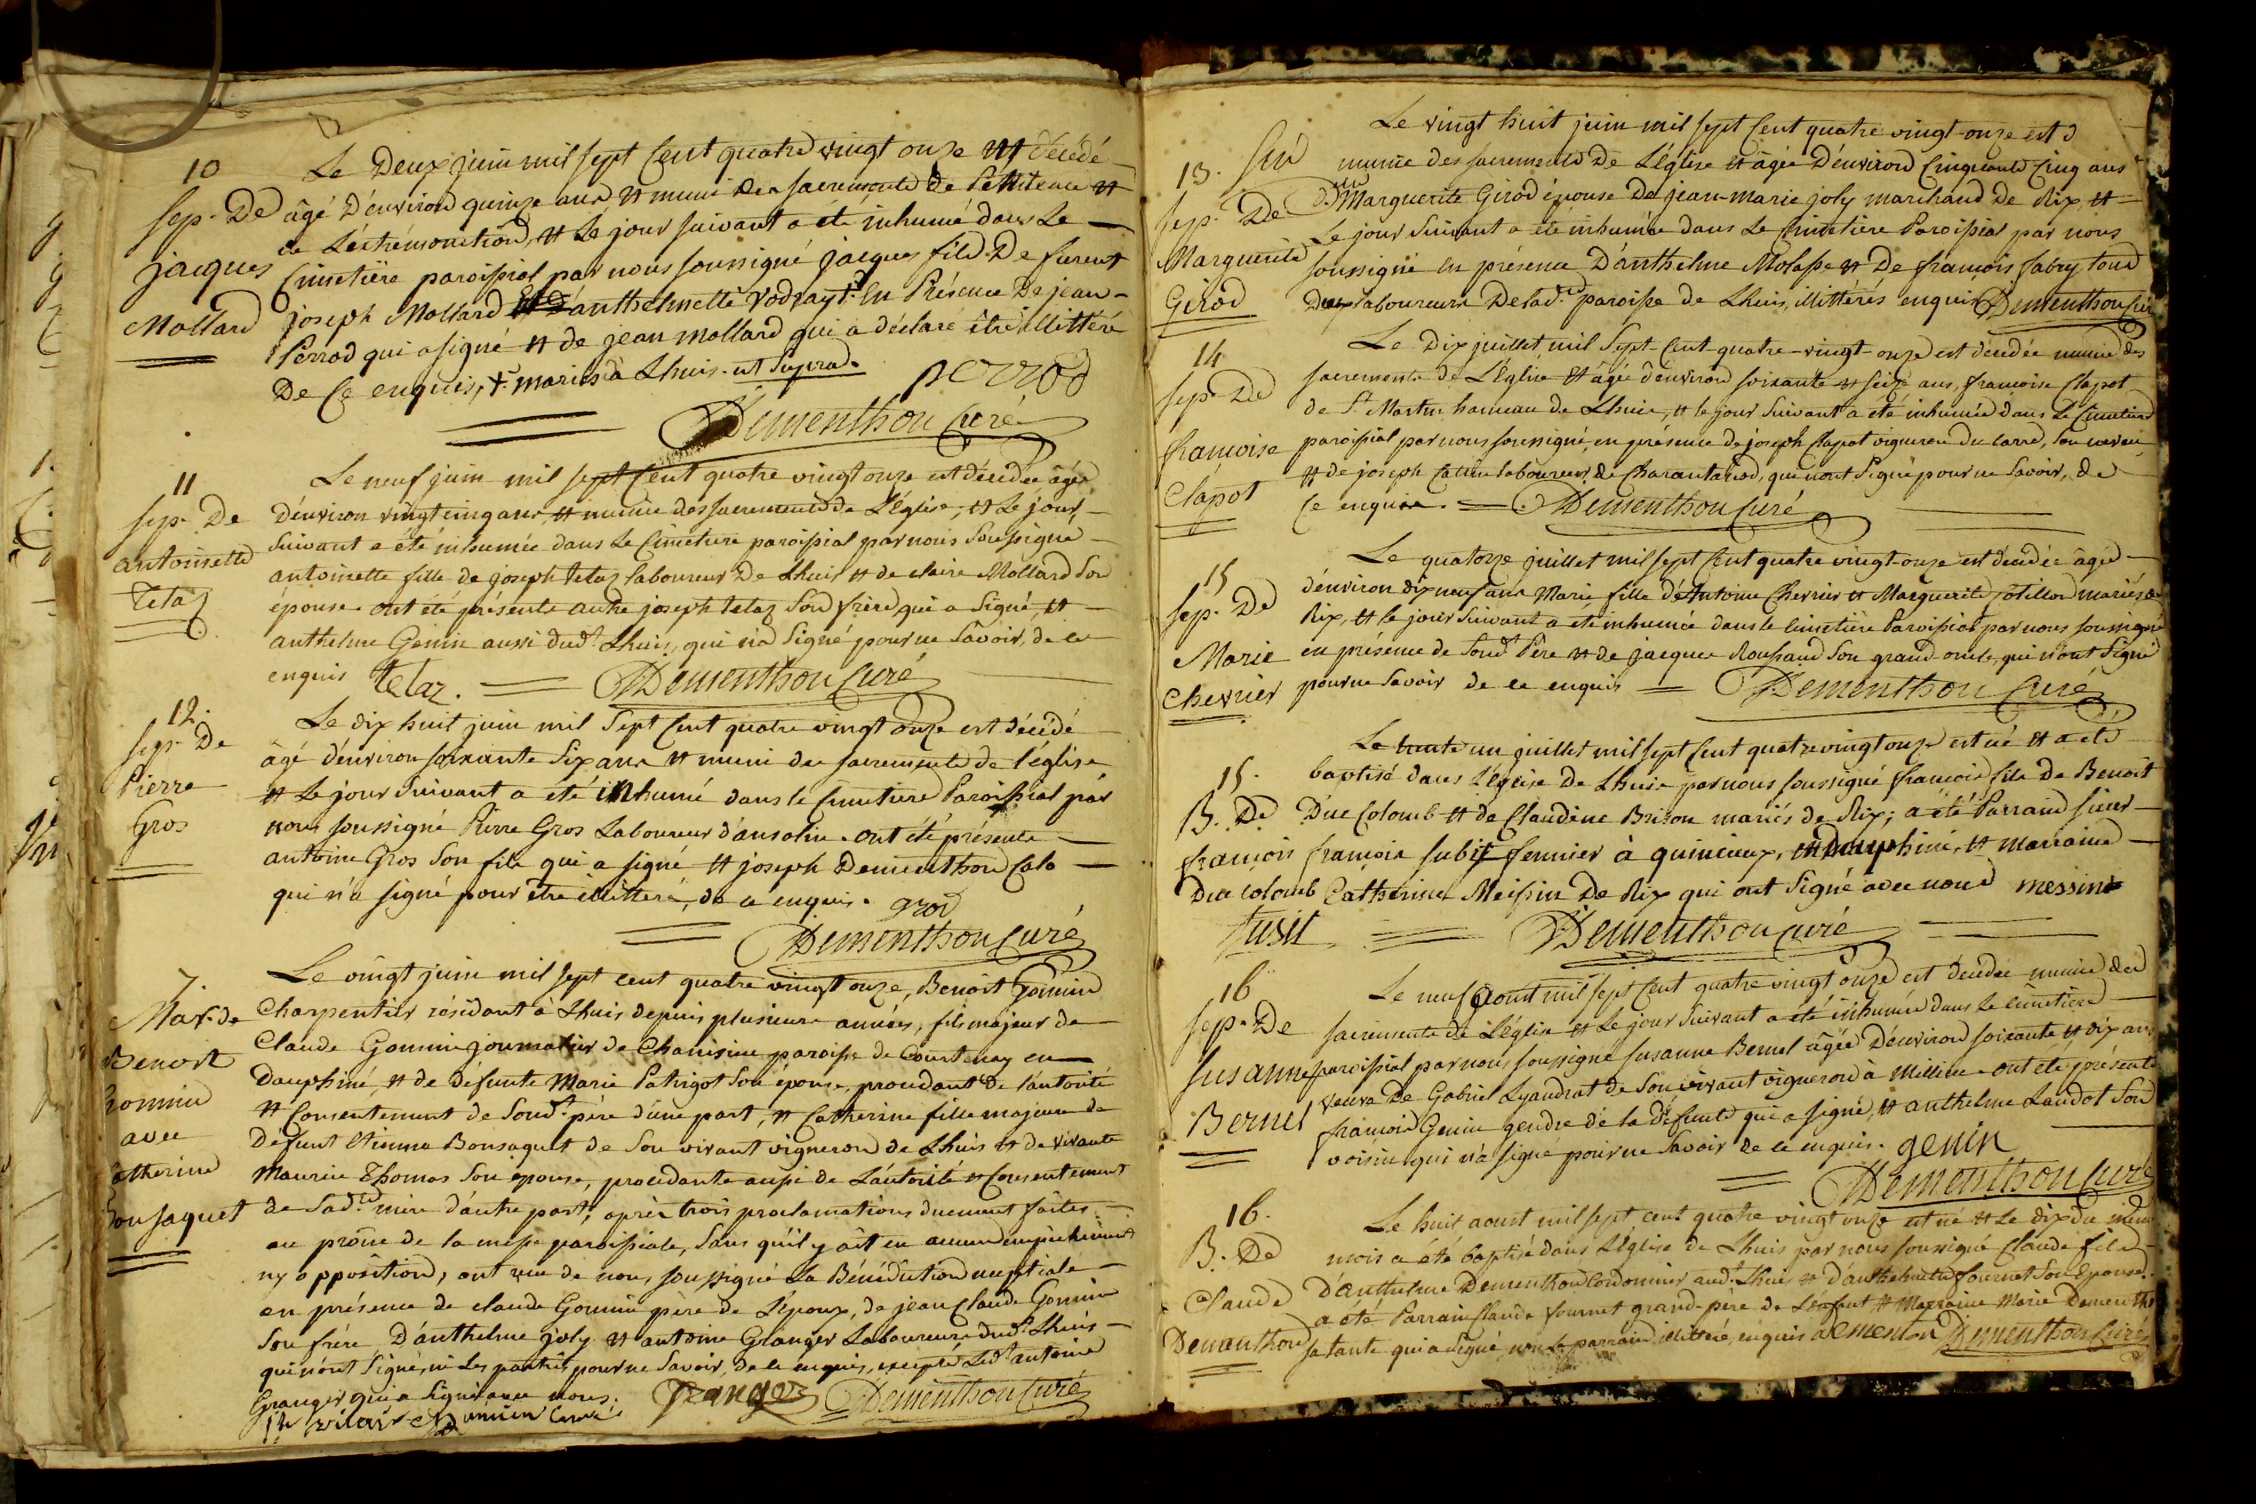 10
Sep. De
jacques
Mollard
Le Deux juin mil sept Cent quatre vingt onze est décédé
âgé D'environ quinze ans et muni des sacrements de Pénitence et
de L'extrémonction, et Le jour suivant a été inhumé dans Le
Cimetière paroissial par nous soussigné jacques fils De furent
joseph Mollard Et D'anthelmette Vodray †. En Présence De jean
Perrod qui a signé et de jean mollard qui a déclaré être illittéré
De Ce enquis, †. mariés à Lhuis. ut Suprad. perrod
Dementhon Curé
11
Sep. De
antoinette
Telaz
Le neuf juin mil sept Cent quatre vingt onze est décédée âgée
D'environ vingt cinq ans, et munie des sacrements de L'église, et Le jour
Suivant a été inhumée dans Le Cimetière paroissial par nous Soussigné
antoinette fille de joseph telaz laboureur De Lhuis et de claire Mollard Son
épouse. ont été présents autre joseph telaz Son frère qui a Signé, et
anthelme Genin aussi dud.t Lhuis, qui n'a Signé pour ne Savoir, de ce
enquis telaz. Dementhon Curé
12.
Sep. De
Pierre
Gros
Le dix huit juin mil Sept Cent quatre vingt onze est décédé
âgé d'environ soixante Six ans et muni des sacrements de l'église
et Le jour Suivant a été inhumé dans le Cimetière Paroissial par
nous soussigné Pierre Gros Laboureur d'ansolin. ont été présents
antoine Gros Son fils qui a signé et joseph Dementhon Calo
qui n'a signé pour être illitteré, de ce enquis. gros
Dementhon Curé
7.
Mar. de
Benoit
Gomin
avec
Catherine
Bonsaquet
Le vingt juin mil sept cent quatre vingt onze, Benoit Gomin
Charpentier résidant à Lhuis depuis plusieurs années, fils majeur de
Claude Gomin journalier de Chanisieu paroisse de Courtenay en
Dauphiné, et de défunte Marie Patrigot Son épouse, procedant de l'autorité
et Consentement de Sond.t père d'une part, et Catherine fille majeure de
Défunt Etienne Bonsaquet de Son vivant vigneron de Lhuis et de vivante
Maurise Thomas Son épouse, procédante aussi de L'autorité et Consentement
de Sad.te mère d'autre part, après trois proclamations duement faites
au prône de la messe paroissiale, Sans qu'il y ait eu aucun empêchement
ny opposition, ont reçu de nous, soussigné La Bénédiction nuptiale
en présence de claude Gomin père de L'époux, de jean Claude Gomin
Son frère, D'anthelme joly et antoine Granger Laboureurs dud.t Lhuis
qui n'ont Signé, ni Les parties pour ne Savoir, de ce enquis, excepté Led.t antoine
Granger qui a Signé avec nous. Granger Dementhon Curé
13.
Sep. De
Marguerite
Girod
Le vingt huit juin mil sept Cent quatre vingt onze est d
munie des sacrements De L'église et âgée D'environ Cinquante Cinq ans
Marguerite Girod épouse De jean-marie joly marchand De Rix, et
Le jour Suivant a été inhumée dans Le Cimetière Paroissial par nous
soussigné en présence D'anthelme Molasse et De francois fabry tous
Deux laboureurs De lad.te paroisse de Lhuis, illittérés enquis Dementhon Curé
14
Sep. De
françoise
Clapot
Le Dix juillet mil Sept Cent quatre-vingt-onze est décédée munie des
sacrements de L'église et âgée d'environ soixante et seize ans, francoise Clapot
de S.t Martin hameau de Lhuis, et le jour Suivant a été inhumée dans Le Cimetiere
paroissial par nous soussigné, en présence de joseph Clapot vigneron du carre, Son neveu
et de joseph Catin laboureur de Charantanod, qui n'ont Signé pour ne Savoir, de
Ce enquis. Dementhon Curé
15
Sep. De
Marie
Chevrier
Le quatorze juillet mil sept Cent quatre vingt onze est décédée âgée
d'environ dix neuf ans Marie fille d'Antoine Chevrier et Marguerite Jotillon mariés de
Rix, et le jour Suivant a été inhumée dans le Cimetière Paroissial par nous soussigné
en présence de Sond.t Père et de jacques Roussaud Son grand oncle, qui n'ont Signé
pour ne Savoir de ce enquis Dementhon Curé
15.
B. De
francois
Duc colomb
Le trente un juillet mil sept Cent quatre vingt onze est né et a été
baptisé dans L'église De Lhuis par nous soussigné francois fils de Benoit
Duc Colomb et de Claudine Brison mariés de Rix; a été Parrain sieur
francois subit fermier à quincieux, en Dauphiné, et marraine
Catherine Meissin De Rix qui ont Signé avec nous messin
subit Dementhon curé
16
Sep. De
Susanne
Bernel
Le neuf Aoust mil sept Cent quatre vingt onze est décédée munie des
sacrements de L'église et Le jour Suivant a été inhumée dans Le cimetière
paroissial par nous soussigné Susanne Bernel âgée D'environ soixante et dix ans
veuve De Gabriel Lyaudrat de Son vivant vigneron à Millieu. ont été présents
francois Genin gendre de la Défunte qui a signé, et anthelme Laudot Son
voisin qui n'a signé pour ne Savoir de ce enquis. genin
Dementhon Curé
16.
B. De
Claude
Dementhon
Le huit aoust mil sept cent quatre vingt onze est né et Le dix du même
mois a été baptisé dans L'église de Lhuis par nous soussigné Claude fils
D'anthelme Dementhon Cordonnier aud.t Lhuis et d'anthelmette fournet Son Epouse.
a été Parrain Claude fournet grand-père de L'enfant et Marraine Marie Dementhon
sa tante qui a Signé non Le parrain illitteré, enquis dementon Dementhon Curé